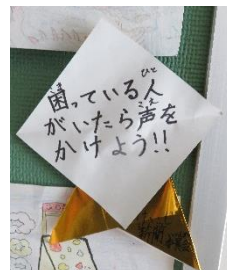 困っている人
がいたら声を
かけよう!!